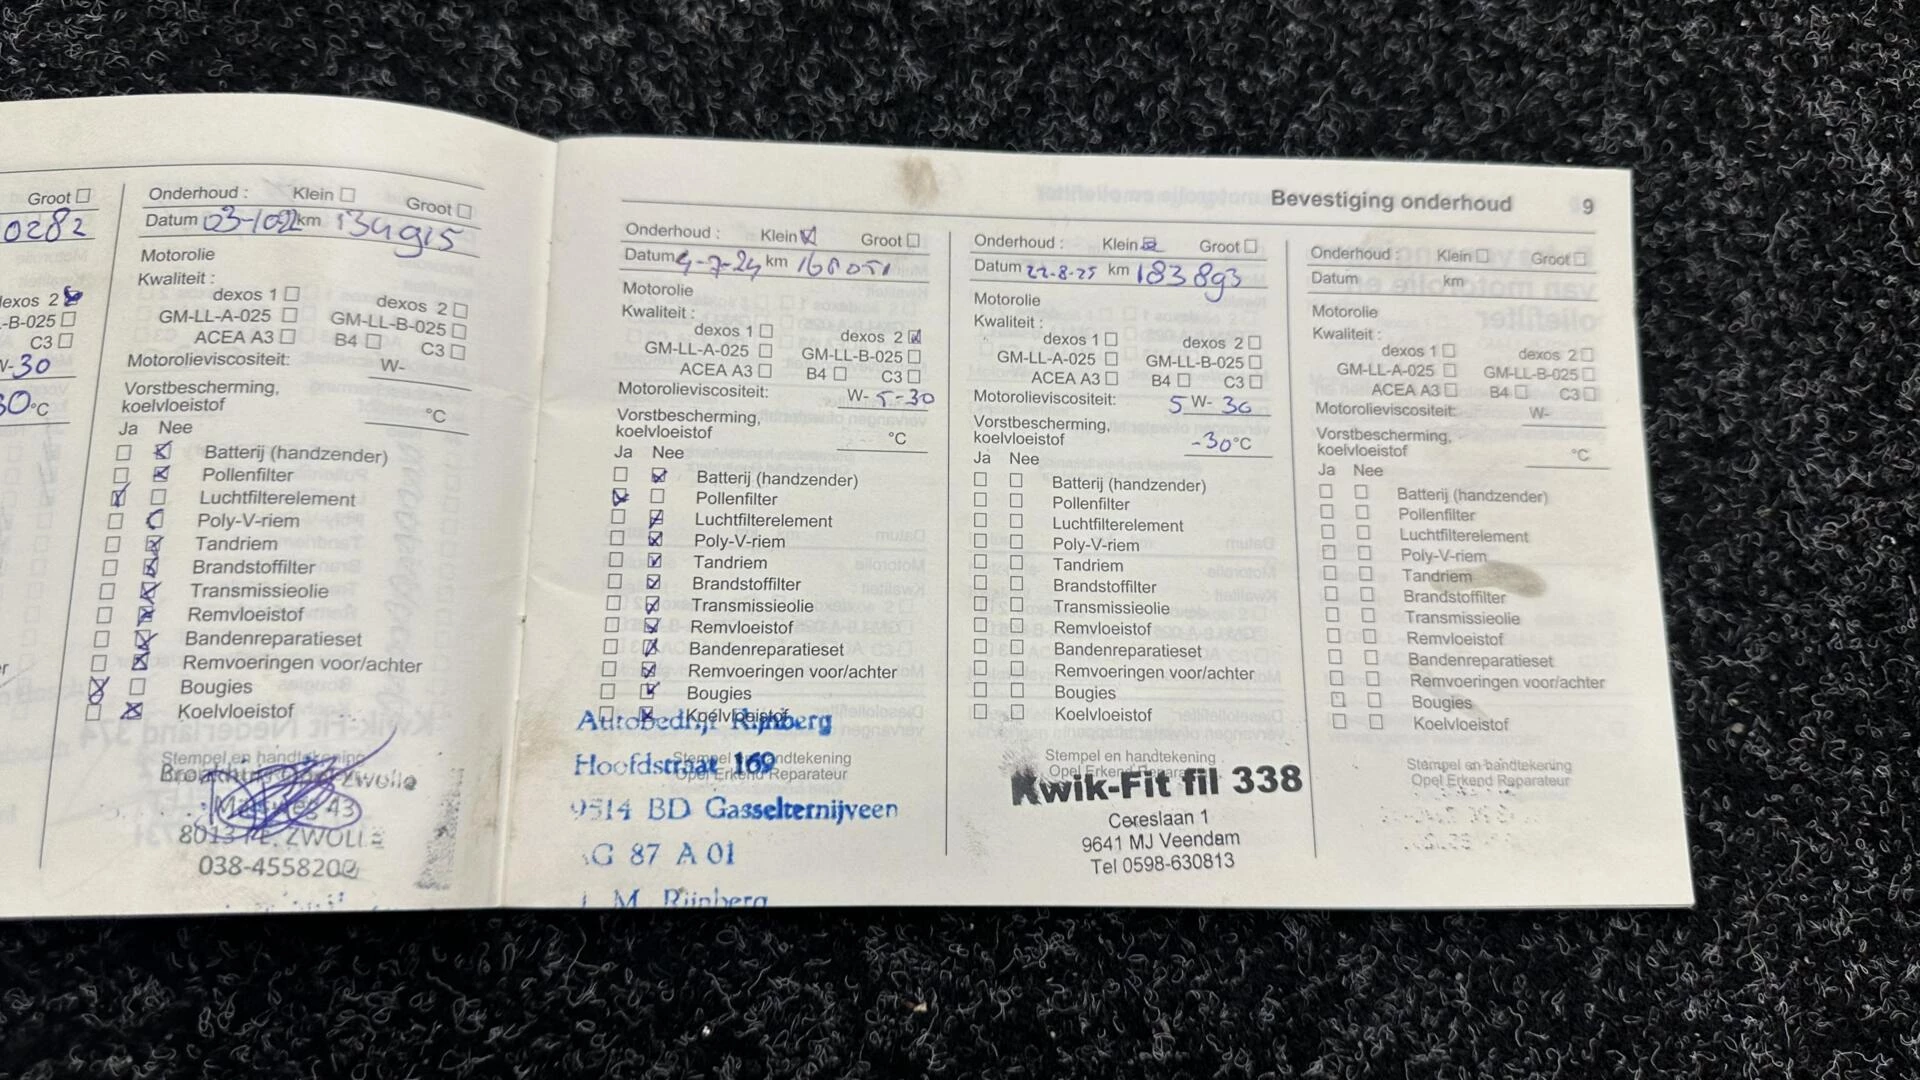 Groot
0282
dexos 2
-B-025
C3
W-30
30°C
Onderhoud : Klein Groot
Datum 03-1022 km 134915
Motorolie
Kwaliteit :
dexos 1 dexos 2
GM-LL-A-025 GM-LL-B-025
ACEA A3 B4 C3
Motorolieviscositeit: W-
Vorstbescherming,
koelvloeistof °C
Ja Nee
Batterij (handzender)
Pollenfilter
Luchtfilterelement
Poly-V-riem
Tandriem
Brandstoffilter
Transmissieolie
Remvloeistof
Bandenreparatieset
Remvoeringen voor/achter
Bougies
Koelvloeistof
Stempel en handtekening
Zwolle
43
ZWOLLE
038-4558200
Bevestiging onderhoud 9
Onderhoud : Klein Groot
Datum 4-7-24 km
Motorolie
Kwaliteit :
dexos 1 dexos 2
GM-LL-A-025 GM-LL-B-025
ACEA A3 B4 C3
Motorolieviscositeit: W- 5-30
Vorstbescherming,
koelvloeistof °C
Ja Nee
Batterij (handzender)
Pollenfilter
Luchtfilterelement
Poly-V-riem
Tandriem
Brandstoffilter
Transmissieolie
Remvloeistof
Bandenreparatieset
Remvoeringen voor/achter
Bougies
Koelvloeistof
Stempel en handtekening
Opel Erkend Reparateur
Autobedrijf Rijnberg
Hoofdstraat 169
9514 BD Gasselternijveen
G 87 A 01
M Rijnberg
Onderhoud : Klein Groot
Datum 22-8-25 km 183893
Motorolie
Kwaliteit :
dexos 1 dexos 2
GM-LL-A-025 GM-LL-B-025
ACEA A3 B4 C3
Motorolieviscositeit: 5 W- 30
Vorstbescherming,
koelvloeistof -30°C
Ja Nee
Batterij (handzender)
Pollenfilter
Luchtfilterelement
Poly-V-riem
Tandriem
Brandstoffilter
Transmissieolie
Remvloeistof
Bandenreparatieset
Remvoeringen voor/achter
Bougies
Koelvloeistof
Stempel en handtekening
Opel Erkend Reparateur
Kwik-Fit fil 338
Cereslaan 1
9641 MJ Veendam
Tel 0598-630813
Onderhoud : Klein Groot
Datum km
Motorolie
Kwaliteit :
dexos 1 dexos 2
GM-LL-A-025 GM-LL-B-025
ACEA A3 B4 C3
Motorolieviscositeit: W-
Vorstbescherming,
koelvloeistof °C
Ja Nee
Batterij (handzender)
Pollenfilter
Luchtfilterelement
Poly-V-riem
Tandriem
Brandstoffilter
Transmissieolie
Remvloeistof
Bandenreparatieset
Remvoeringen voor/achter
Bougies
Koelvloeistof
Stempel en handtekening
Opel Erkend Reparateur